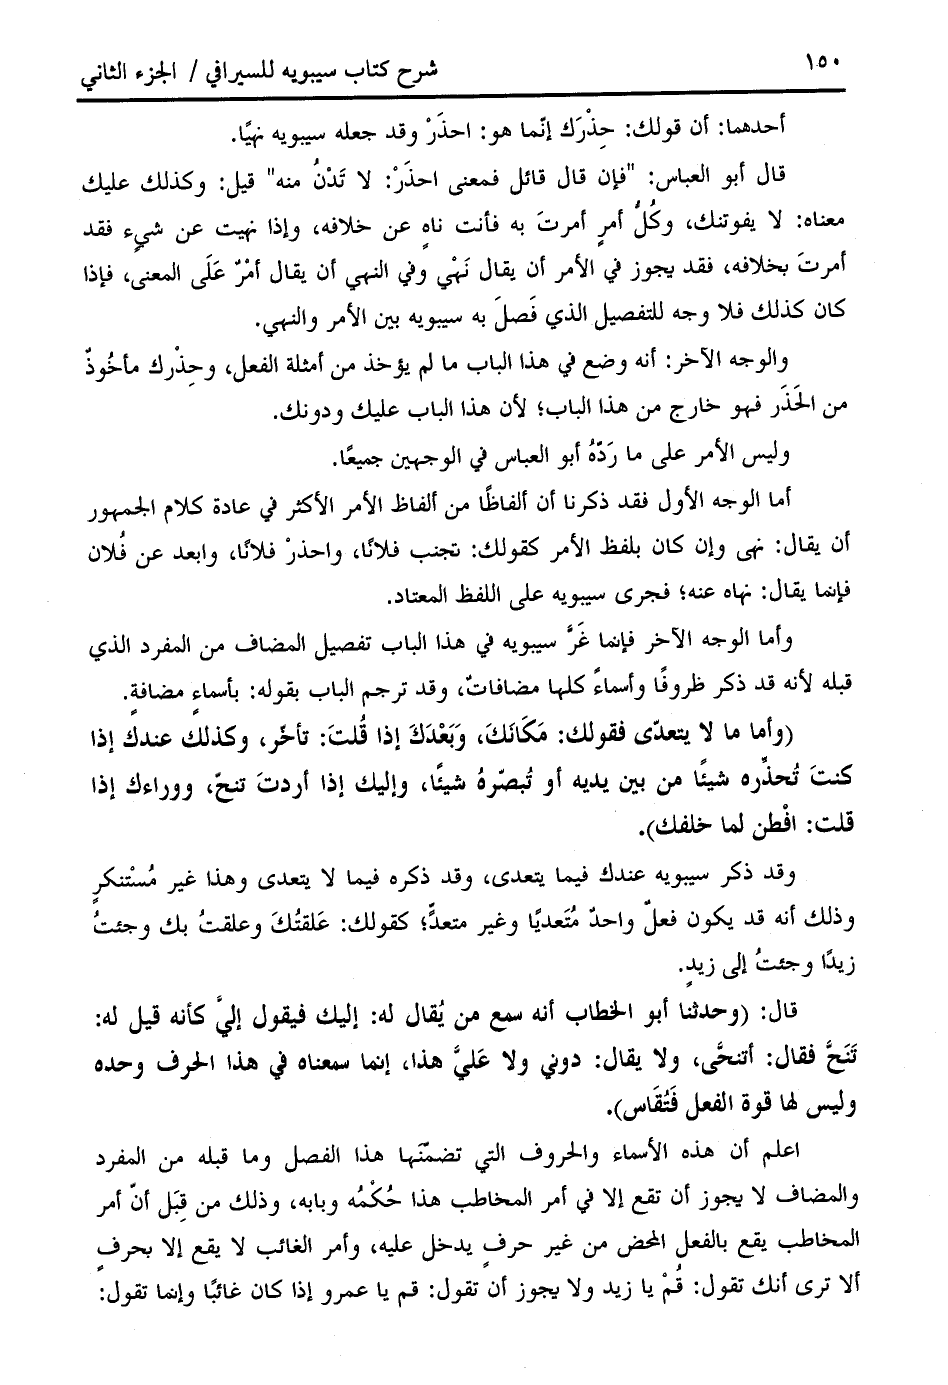 ١٥٠
شرح كتاب سيبويه للسيرافي / الجزء الثاني
أحدهما: أن قولك: حِذْرَك إنّما هو: احذَرْ وقد جعله سيبويه نهيًا.
قال أبو العباس: "فإن قال قائل فمعنى احذَرْ: لا تَدْنُ منه" قيل: وكذلك عليك
معناه: لا يفوتنك، وكُلُّ أمرٍ أمرتَ به فأنت ناهٍ عن خلافه، وإذا نهيت عن شيءٍ فقد
أمرتَ بخلافه، فقد يجوز في الأمر أن يقال نَهْي وفي النهي أن يقال أمْرٌ عَلَى المعنى، فإذا
كان كذلك فلا وجه للتفصيل الذي فَصلَ به سيبويه بين الأمر والنهي.
والوجه الآخر: أنه وضع في هذا الباب ما لم يؤخذ من أمثلة الفعل، وحِذْرك مأخُوذٌ
من الحَذَر فهو خارج من هذا الباب؛ لأن هذا الباب عليك ودونك.
وليس الأمر على ما رَدّهُ أبو العباس في الوجهين جميعًا.
أما الوجه الأول فقد ذكرنا أن ألفاظًا من ألفاظ الأمر الأكثر في عادة كلام الجمهور
أن يقال: نهى وإن كان بلفظ الأمر كقولك: تجنب فلانًا، واحذرْ فلانًا، وابعد عن فُلان
فإنما يقال: نهاه عنه؛ فجرى سيبويه على اللفظ المعتاد.
وأما الوجه الآخر فإنما غَرَّ سيبويه في هذا الباب تفصيل المضاف من المفرد الذي
قبله لأنه قد ذكر ظروفًا وأسماءً كلها مضافاتٌ، وقد ترجم الباب بقوله: بأسماءٍ مضافةٍ.
(وأما ما لا يتعدّى فقولك: مَكَانَكَ، وَبَعْدَكَ إذا قُلتَ: تأخّر، وكذلك عندك إذا
كنتَ تُحذِّره شيئًا من بين يديه أو تُبصّرهُ شيئًا، وإليك إذا أردتَ تنحّ، ووراءك إذا
قلت: افْطن لما خلفك).
وقد ذكر سيبويه عندك فيما يتعدى، وقد ذكره فيما لا يتعدى وهذا غير مُسْتنكرٍ
وذلك أنه قد يكون فعلٌ واحدٌ مُتَعديًا وغير متعدٍّ؛ كقولك: عَلقتُكَ وعلقتُ بك وجئتُ
زيدًا وجئتُ إلى زيدٍ.
قال: (وحدثنا أبو الخطاب أنه سمع من يُقال له: إليك فيقول إليَّ كأنه قيل له:
تَنَحَّ فقال: أتنحَّى، ولا يقال: دوني ولا عَليَّ هذا، إنما سمعناه في هذا الحرف وحده
وليس لها قوة الفعل فَتُقَاس).
اعلم أن هذه الأسماء والحروف التي تضمّنَها هذا الفصل وما قبله من المفرد
والمضاف لا يجوز أن تقع إلا في أمر المخاطب هذا حُكْمُه وبابه، وذلك من قِبَل أنّ أمر
المخاطب يقع بالفعل المحض من غير حرفٍ يدخل عليه، وأمر الغائب لا يقع إلا بحرفٍ
ألا ترى أنك تقول: قُمْ يا زيد ولا يجوز أن تقول: قم يا عمرو إذا كان غائبًا وإنما تقول: